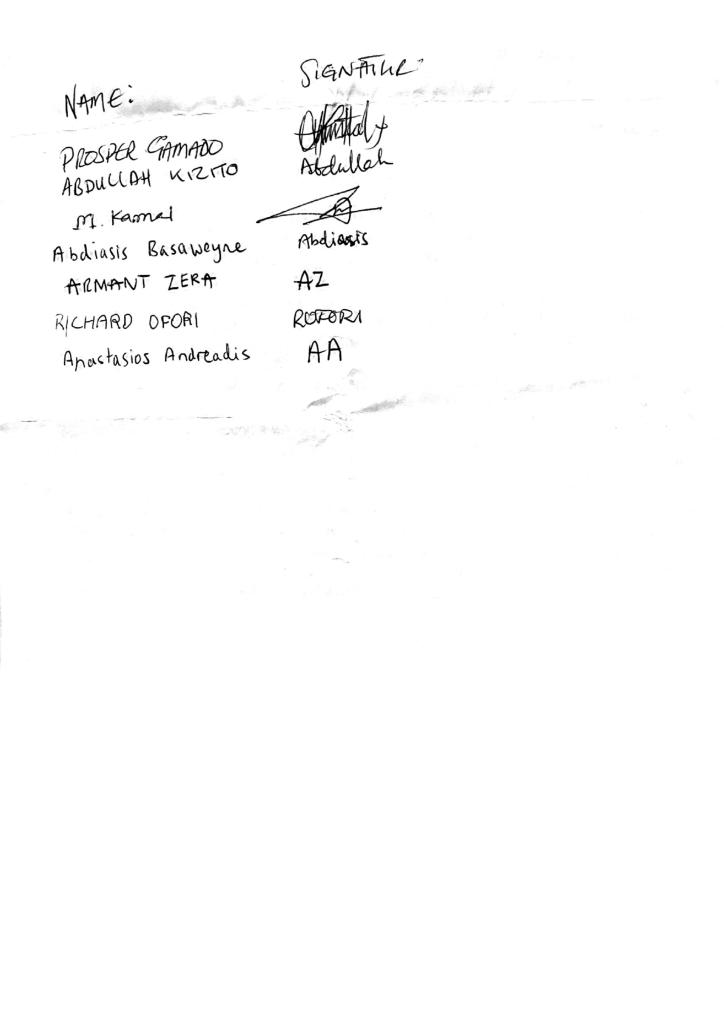 NAME: SIGNATURE:
PROSPER GAMADO
ABDULLAH KIZITO Abdullah
M. Kamal
Abdiasis Basaweyne Abdiasis
ARMANT ZERA AZ
RICHARD OFORI ROFORI
Anastasios Andreadis AA